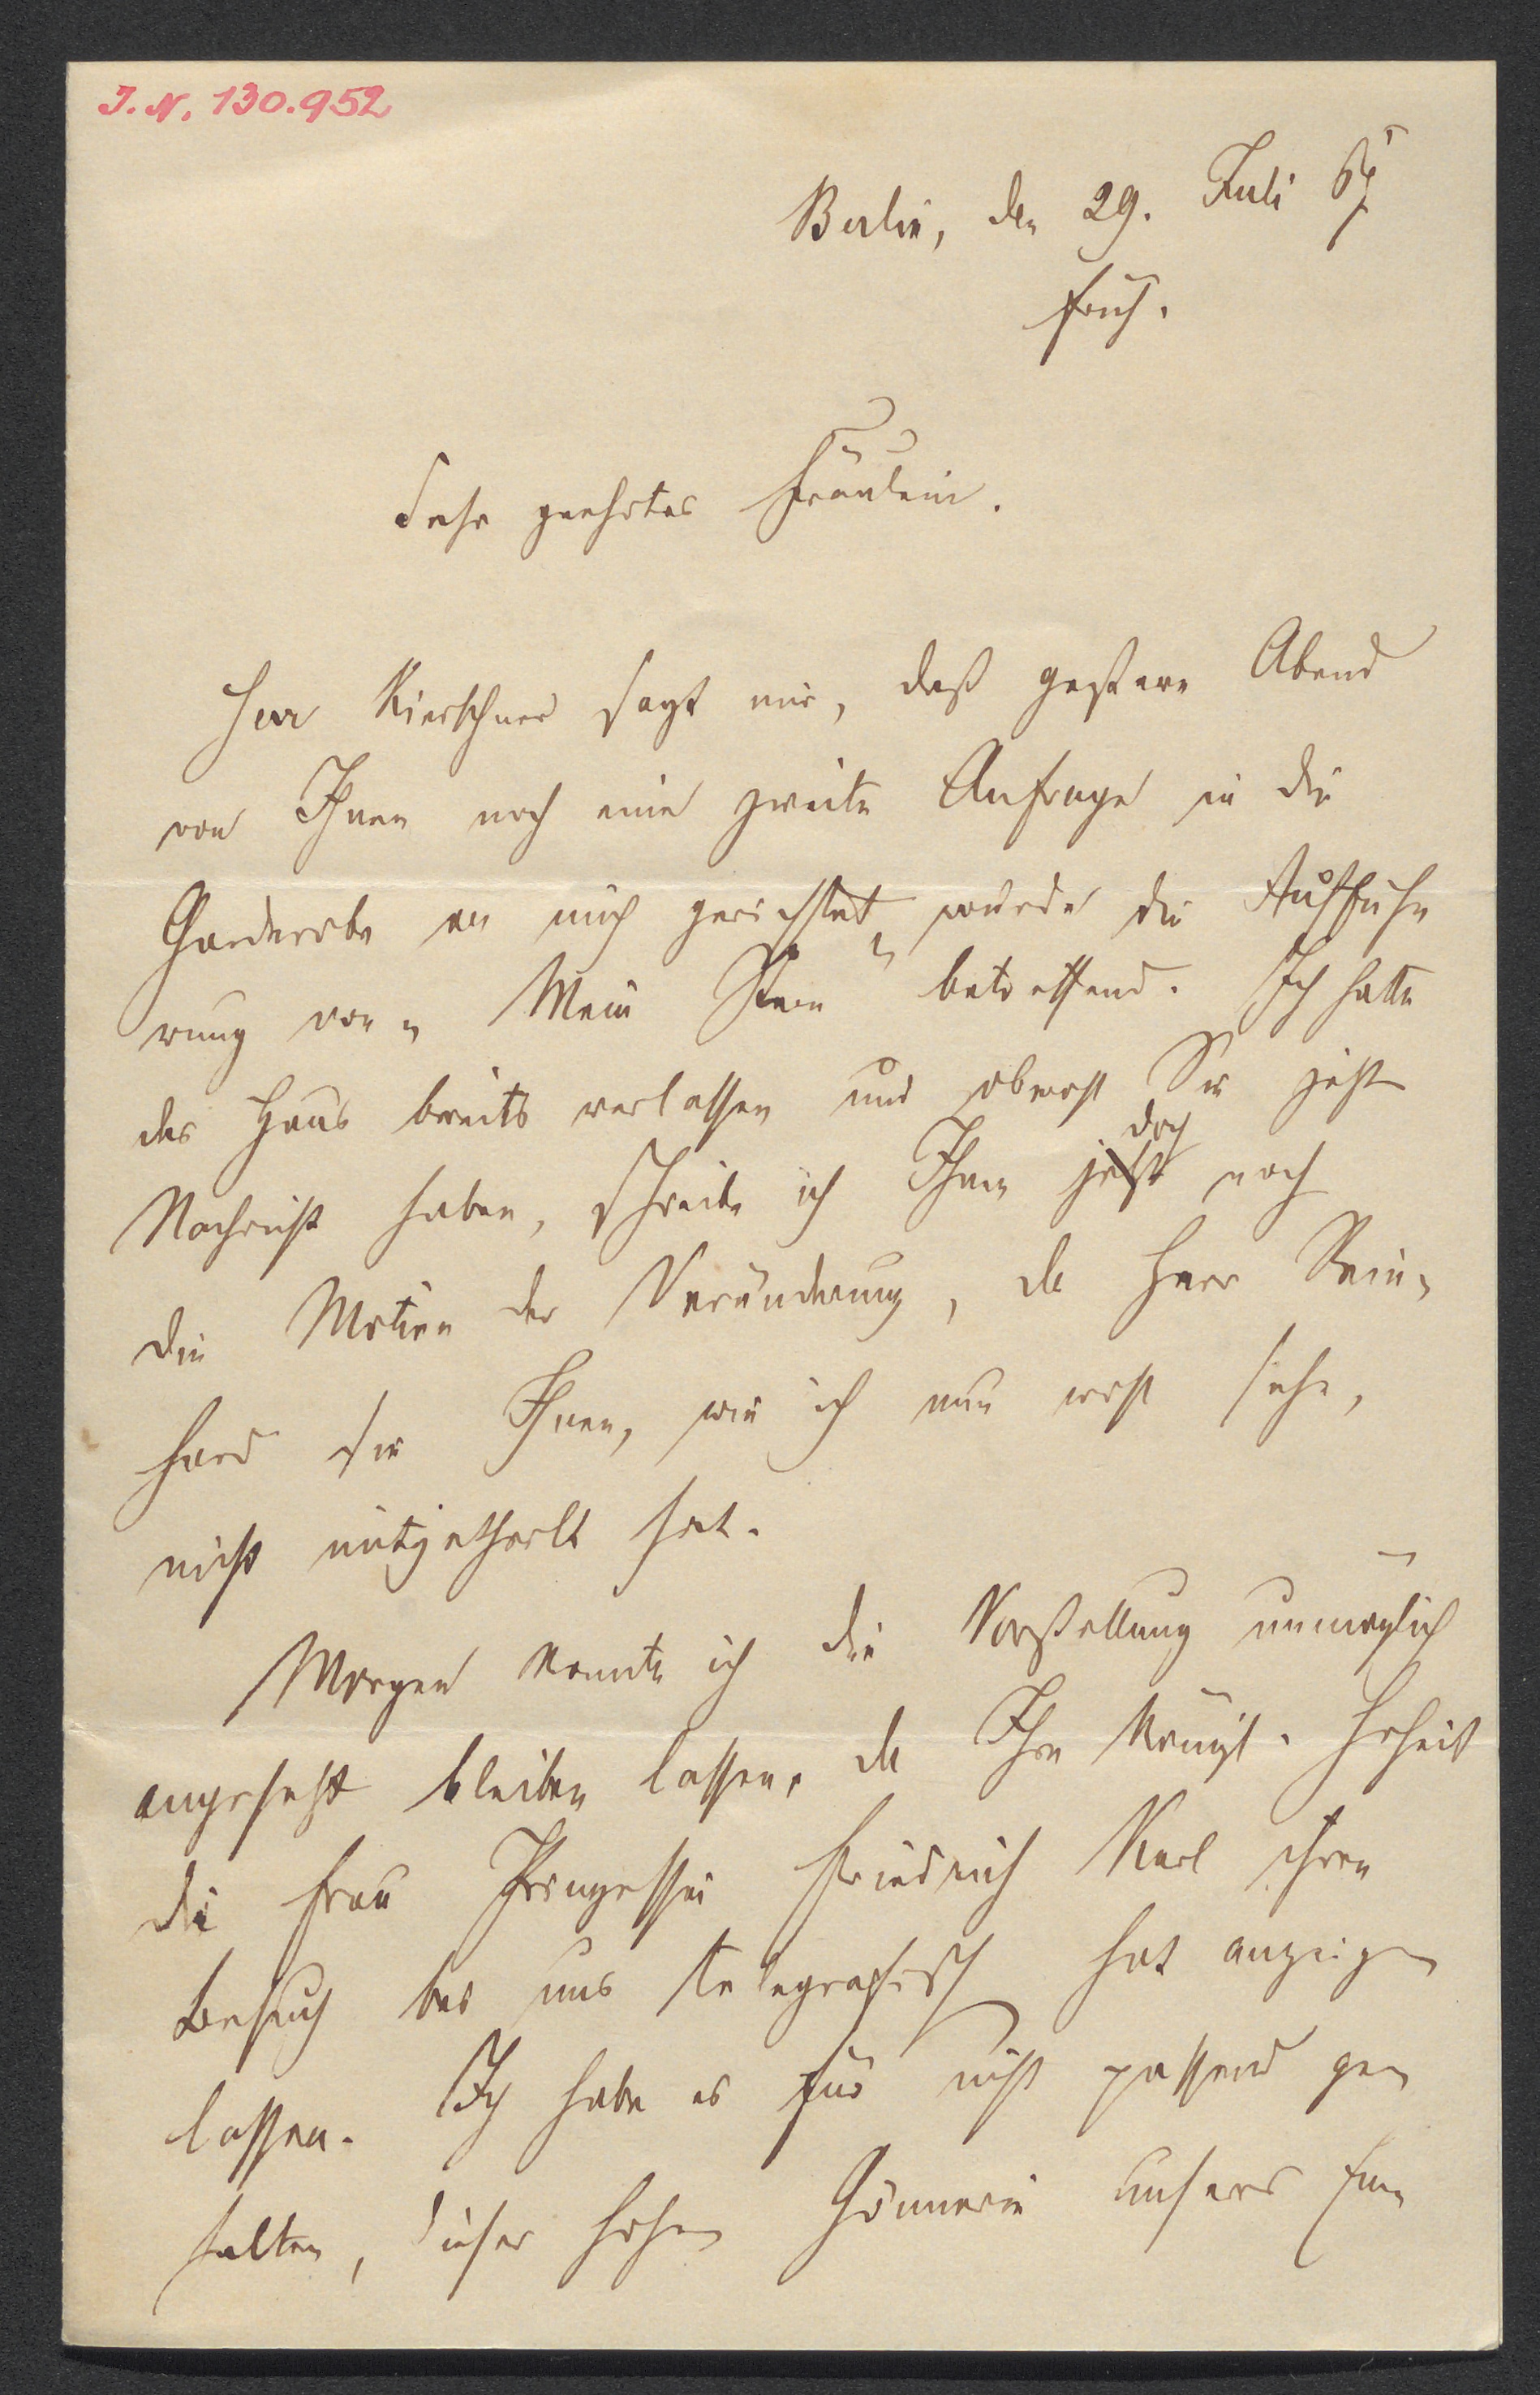 J. N. 130.952
Berlin, den 29. Juli 67
früh.
Sehr geehrtes Fräulein.
Herr Kierschner sagt mir, daß gestern Abend
von Ihnen noch eine zweite Anfrage in die
Garderobe an mich gerichtet wurde die Auffüh-
rung von „Mein Stern“ betreffend. Ich hatte
das Haus bereits verlassen und obwohl Sie jetzt
Nachricht haben, schreibe ich Ihnen doch noch
die Motive der Veränderung, da Herr Rein-
hard sie Ihnen, wie ich nun wohl sehe,
nicht mitgetheilt hat.
Morgen konnte ich die Vorstellung unmöglich
angesetzt bleiben lassen, da Ihre Königl. Hoheit
die Frau Prinzessin Friedrich Karl ihren
Besuch bei uns telegrafisch hat anzeigen
lassen. Ich habe es für nicht passend ge-
halten, dieser hohen Gönnerin unseres